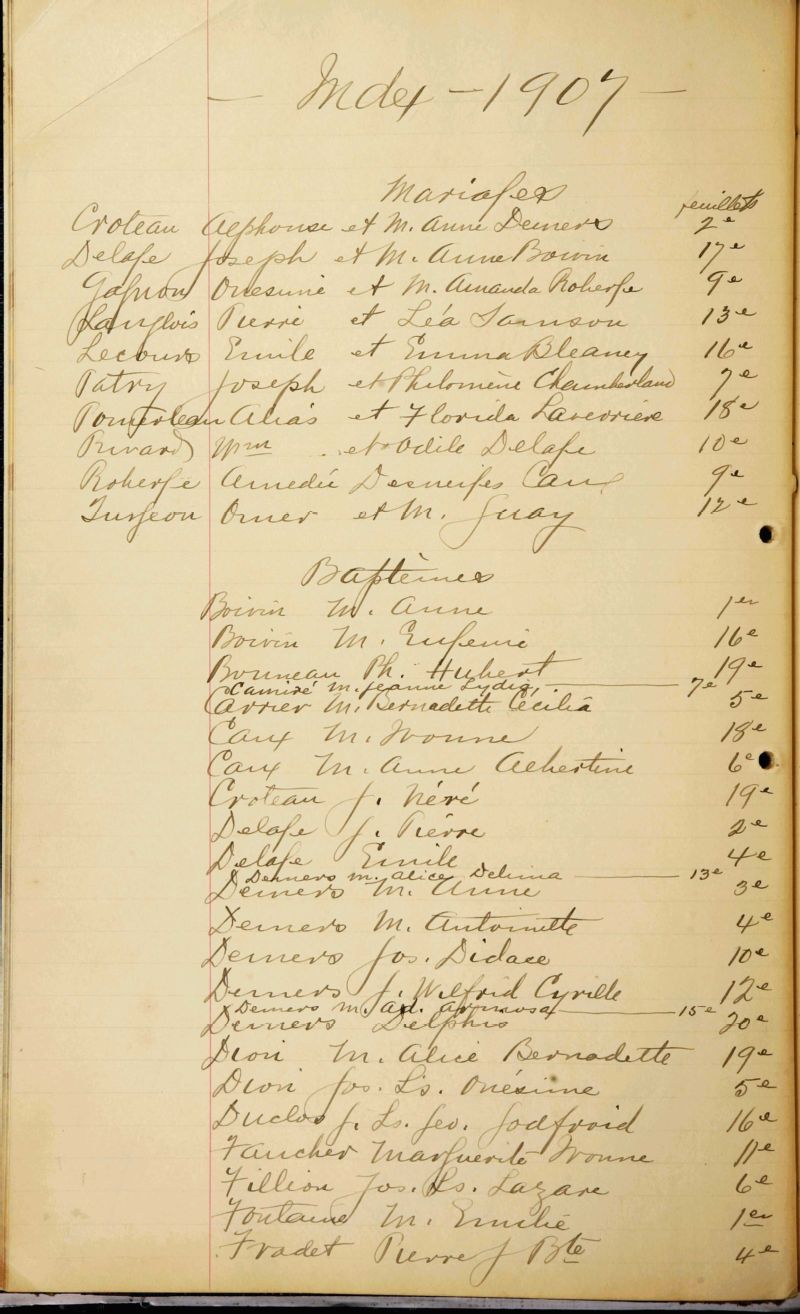 — Index — 1907 —
Mariages
feuillets
Croteau Alphonse et M. Anne Demers 2e
Delage Joseph et M. Anne Boivin 17e
Gagnon Onesime et M. Amanda Roberge 9e
Langlois Pierre et Léa Samson 13e
Lecours Emile et Emma Bleaney 16e
Patry Joseph et Philomène Chamberland 7e
Pomerleau Alias et Florida Laverrière 18e
Rivard Wm et Odile Delage 10e
Roberge Amedée Desneiges Caux 9e
Turgeon Omer et M. Guay 12e
Baptêmes
Boivin M. Anne 1er
Boivin M. Eugenie 16e
Bonneau Ph. Hubert 19e
Camiré M. Jeanne Lydia, — 7e
Carrier M. Bernadette Cécilia 5e
Caux M. Ivonne 18e
Caux M. Anne Albertine 6e
Croteau J. Néré 19e
Delage J. Pierre 2e
Delage Emile 4e
Demers M. Alice Delima — 13e
Demers M. Anne 3e
Demers M. Antoinette 4e
Demers Jos. Didace 10e
Demers J. Wilfrid Cyrille 12e
Demers M. Ad. — 15e
Demers Delphis 20e
Dion M. Alice Bernadette 19e
Dion Jos. Ls. Onésime 5e
Duclos J. Ls. Geo. Godfroid 16e
Faucher Marguerite Ivonne 11e
Fillion Jos. Ls. Lazare 6e
Fontaine M. Emilie 1er
Fradet Pierre J Bte 4e